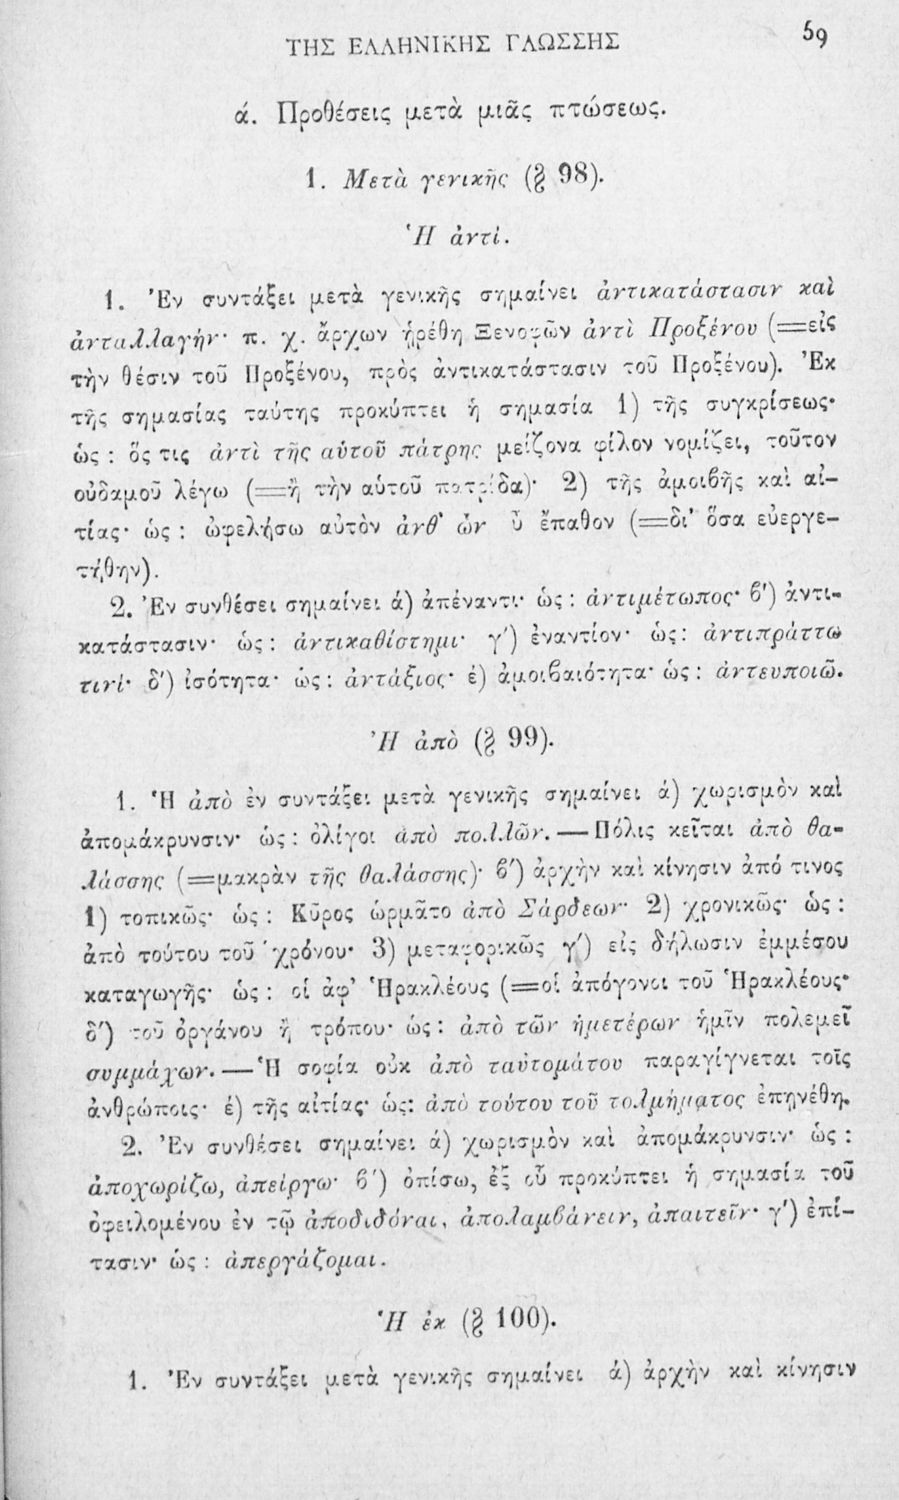 ΤΗΣ ΕΛΛΗΝΙΚΗΣ ΓΛΩΣΣΗΣ 59
ά. Προθέσεις μετὰ μιᾶς πτώσεως.
1. Μετὰ γενικῆς (§ 98).
Ἡ ἀντὶ.
1. Ἐν συντάξει μετὰ γενικῆς σημαίνει ἀντικατάστασιν καὶ
ἀνταλλαγήν· π. χ. ἄρχων ᾑρέθη Ξενοφῶν ἀντὶ Προξένου (=εἰς
τὴν θέσιν τοῦ Προξένου, πρὸς ἀντικατάστασιν τοῦ Προξένου). Ἐκ
τῆς σημασίας ταύτης προκύπτει ἡ σημασία 1) τῆς συγκρίσεως·
ὡς : ὅς τις ἀντὶ τῆς αὑτοῦ πάτρης μείζονα φίλον νομίζει, τοῦτον
οὐδαμοῦ λέγω (=ἢ τὴν αὑτοῦ πατρίδα)· 2) τῆς ἀμοιβῆς καὶ αἰ–
τίας· ὡς : ὠφελήσω αὐτὸν ἀνθ' ὧν εὖ ἔπαθον (=δι' ὅσα εὐεργε–
τήθην).
2. Ἐν συνθέσει σημαίνει ά) ἀπέναντι· ὡς : ἀντιμέτωπος· β') ἀντι-
κατάστασιν· ὡς : ἀντικαθίστημι· γ') ἐναντίον· ὡς : ἀντιπράττω
τινί· δ') ἰσότητα· ὡς : ἀντάξιος· έ) ἀμοιβαιότητα· ὡς : ἀντευποιῶ.
Ἡ ἀπὸ (§ 99).
1. Ἡ ἀπὸ ἐν συντάξει μετὰ γενικῆς σημαίνει ά) χωρισμὸν καὶ
ἀπομάκρυνσιν· ὡς : ὀλίγοι ἀπὸ πολλῶν.—Πόλις κεῖται ἀπὸ θα-
λάσσης (=μακρὰν τῆς θαλάσσης)· β') ἀρχὴν καὶ κίνησιν ἀπό τινος
1) τοπικῶς· ὡς : Κῦρος ὡρμᾶτο ἀπὸ Σάρδεων· 2) χρονικῶς· ὡς :
ἀπὸ τούτου τοῦ χρόνου· 3) μεταφορικῶς γ') εἰς δήλωσιν ἐμμέσου
καταγωγῆς· ὡς : οἱ ἀφ' Ἡρακλέους (=οἱ ἀπόγονοι τοῦ Ἡρακλέους·
δ') τοῦ ὀργάνου ἢ τρόπου· ὡς : ἀπὸ τῶν ἡμετέρων ἡμῖν πολεμεῖ
συμμάχων.—Ἡ σοφία οὐκ ἀπὸ ταὐτομάτου παραγίγνεται τοῖς
ἀνθρώποις· έ) τῆς αἰτίας· ὡς: ἀπὸ τούτου τοῦ τολμήματος ἐπῃνέθη.
2. Ἐν συνθέσει σημαίνει ά) χωρισμὸν καὶ ἀπομάκρυνσιν· ὡς :
ἀποχωρίζω, ἀπείργω· β') ὀπίσω, ἐξ οὗ προκύπτει ἡ σημασία τοῦ
ὀφειλομένου ἐν τῷ ἀποδιδόναι, ἀπολαμβάνειν, ἀπαιτεῖν· γ') ἐπί–
τασιν· ὡς : ἀπεργάζομαι.
Ἡ ἐκ (§ 100).
1. Ἐν συντάξει μετὰ γενικῆς σημαίνει ά) ἀρχὴν καὶ κίνησιν